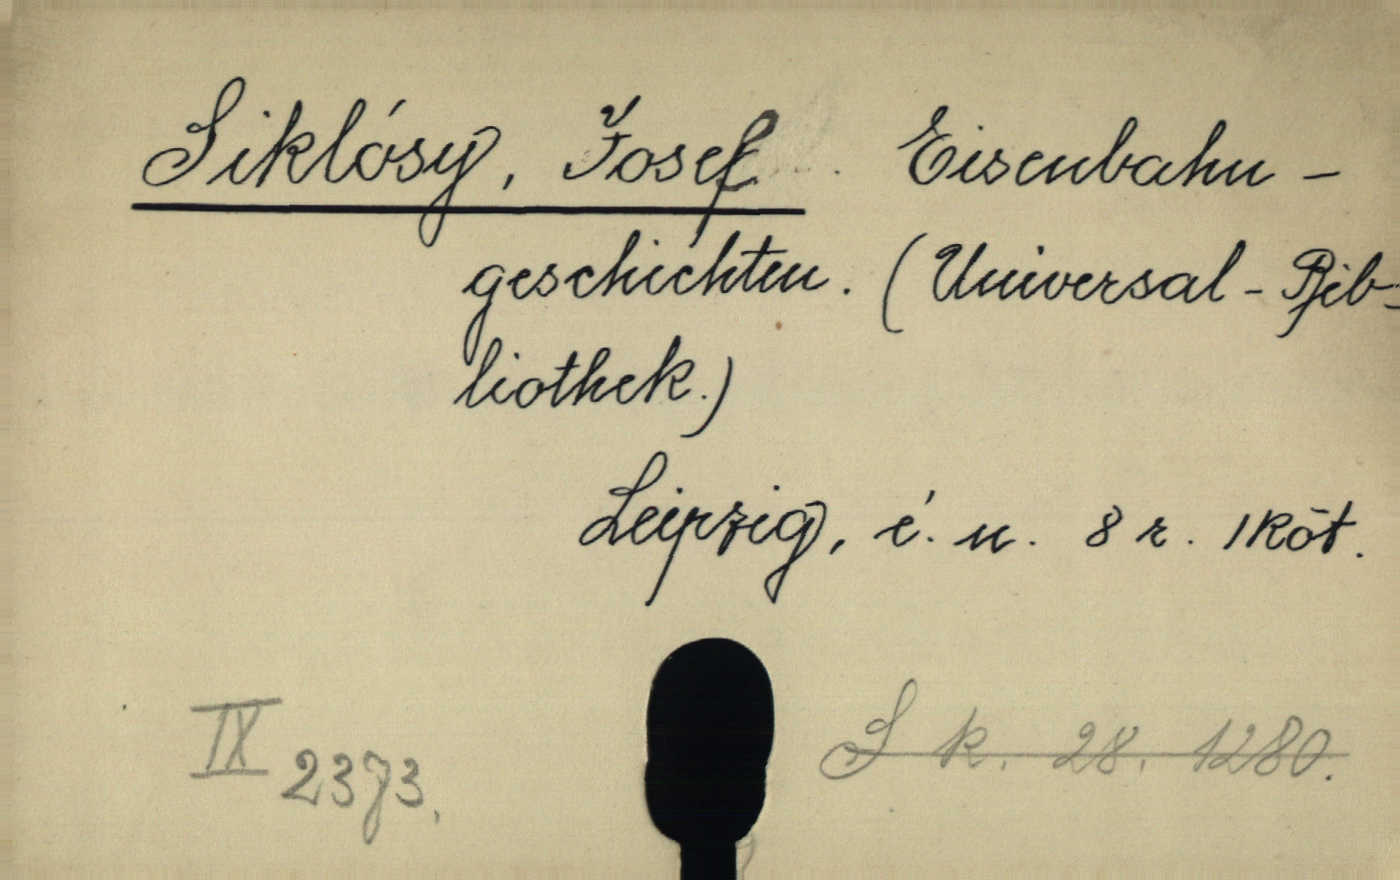 Siklósy, Josef. Eisenbahn-
geschichten. (Universal-Bib-
liothek.)
Leipzig, é. n. 8 r. 1 köt.
IX 2373.
S k. 28. 1280.